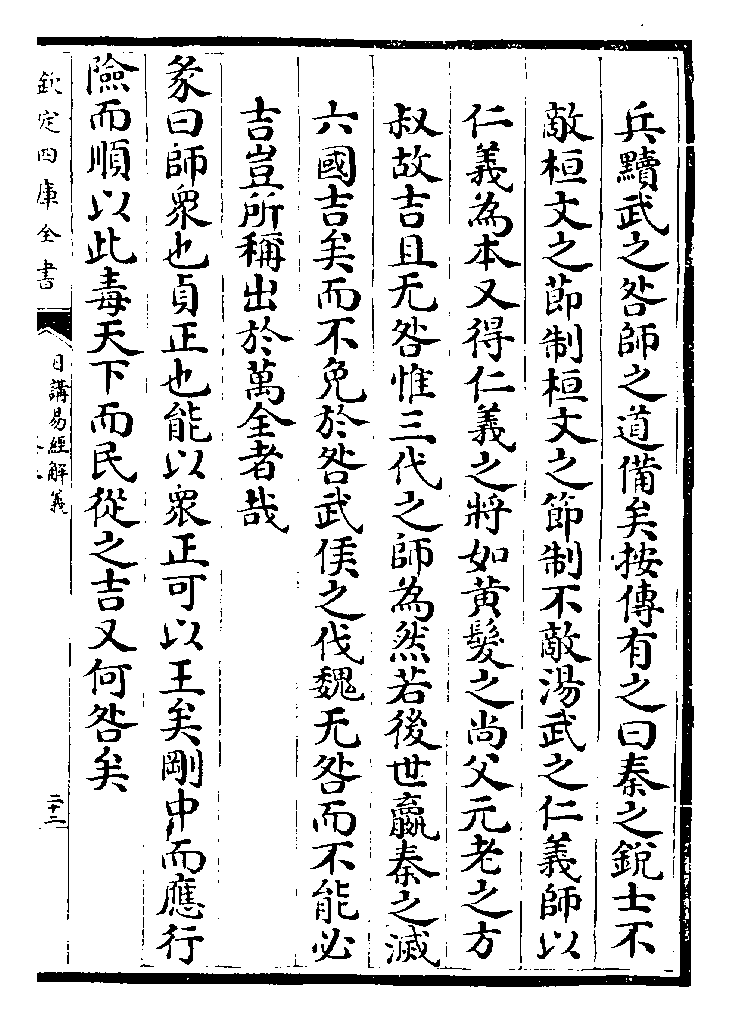 兵黷武之咎師之道備矣按傳有之曰秦之銳士不
敵桓文之節制桓文之節制不敵湯武之仁義師以
仁義為本又得仁義之將如黄髮之尚父元老之方
叔故吉且无咎惟三代之師為然若後世嬴秦之滅
六國吉矣而不免於咎武侯之伐魏无咎而不能必
吉豈所稱出於萬全者哉
彖曰師衆也貞正也能以衆正可以王矣剛中而應行
險而順以此毒天下而民從之吉又何咎矣
欽定四庫全書
日講易經解義
二十二